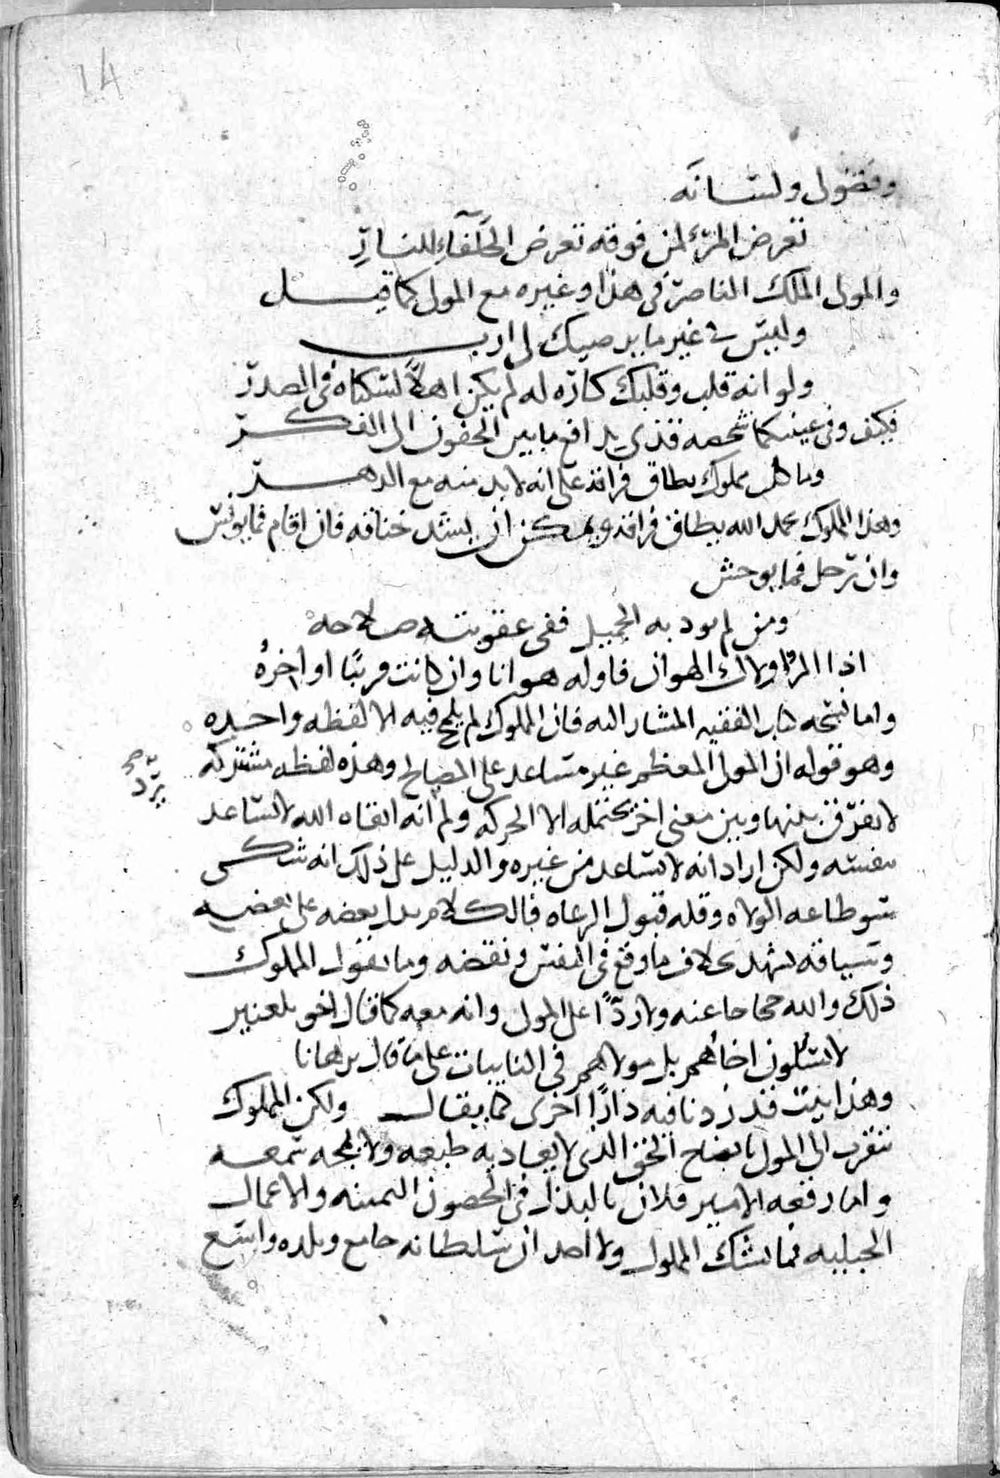 14
وفضول ولسانه
تعرض المرء لمن فوقه تعرض الحلفاء للنار
والمولى الملك الناصر في هذا وغيره مع المولى كما قيل
وليس في غير ما يرضيك لي ارب
ولو انه قلب وقلبك كاره له لم يكن اهلا لسكناه في الصدر
فكيف وفي عينيكما شخصه قذى يدافع ما بين الجفون الى الفكر
وما كل مملوك يطاق فراقه على انه لا بد منه مع الدهر
وهذا المملوك بحمد الله يطاق فراقه ويمكن ان يشد خناقه فان اقام فما يونس
وان ترحل فما يوحش
ومن لم يود به الجميل ففي عقوبته صلاحه
اذا المرء اولاك الهوان فاوله هوانا وان كانت قريبا اواخره
واما نسخه كتاب الفقيه المشار اليه فان المملوك لم يلمح فيه الا لفظه واحده
وهو قوله ان المولى المعظم غير مساعد على المصالح وهذه لفظه مشتركه
لا يفرق بينها وبين معنى اخر يحتمله الا الحركه ولم انه ابقاه الله لا يساعد
بنفسه ولكن اراد انه لا يساعد من غيره والدليل على ذلك انه شكى
سو طاعه الولاه وقله قبول الرعاه فالكلام يدل بعضه على بعضه
وسياقه يشهد بخلاف ما وقع في النفس ونقضه وما يقول المملوك
ذلك والله حجاجا عنه ولا ردا على المولى وانه معه كما قال اخو بلعنبر
لا يسئلون اخاهم بل مولاهم في النايبات على ما قال برهانا
وهذا بيت قد زدنا فيه دارا اخرى كما يقال ولكن المملوك
يتقرب الى المولى بايضاح الحق الذي لا يعاديه طبعه ولا يمجه سمعه
واما دفعه الامير فلان بالبذل في الحصون اليمنيه والاعمال
الجبليه فما يشك المملوك ولا احد ان سلطانه جامع وبلده واسع